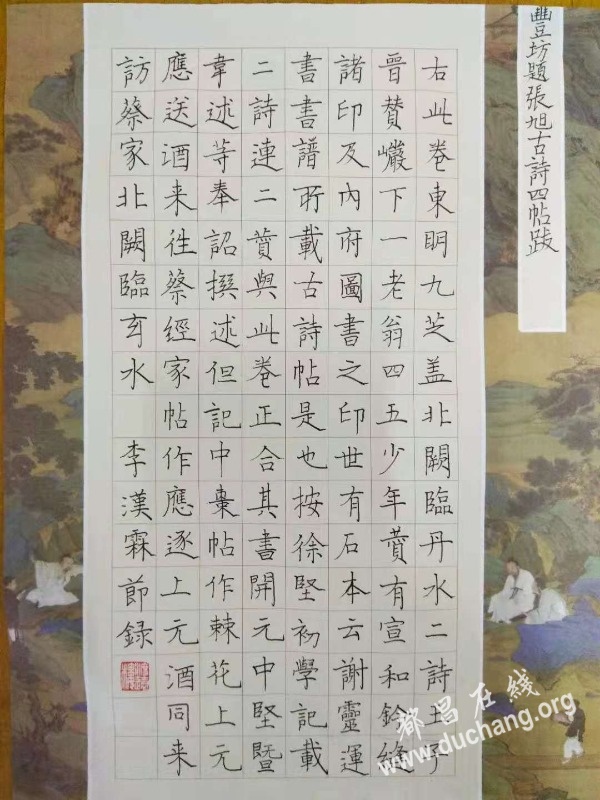 豐坊題張旭古詩四帖跋
右此卷東明九芝盖北闕臨丹水二詩王子
晉賛巖下一老翁四五少年賛有宣和鈐縫
諸印及內府圖書之印世有石本云謝靈運
書書譜所載古詩帖是也按徐堅初學記載
二詩連二賛與此卷正合其書開元中堅暨
韋述等奉詔撰述但記中棗帖作棘花上元
應送酒来徃蔡經家帖作應逐上元酒同来
訪蔡家北闕臨玄水 李漢霖節錄
都昌在线
www.duchang.org